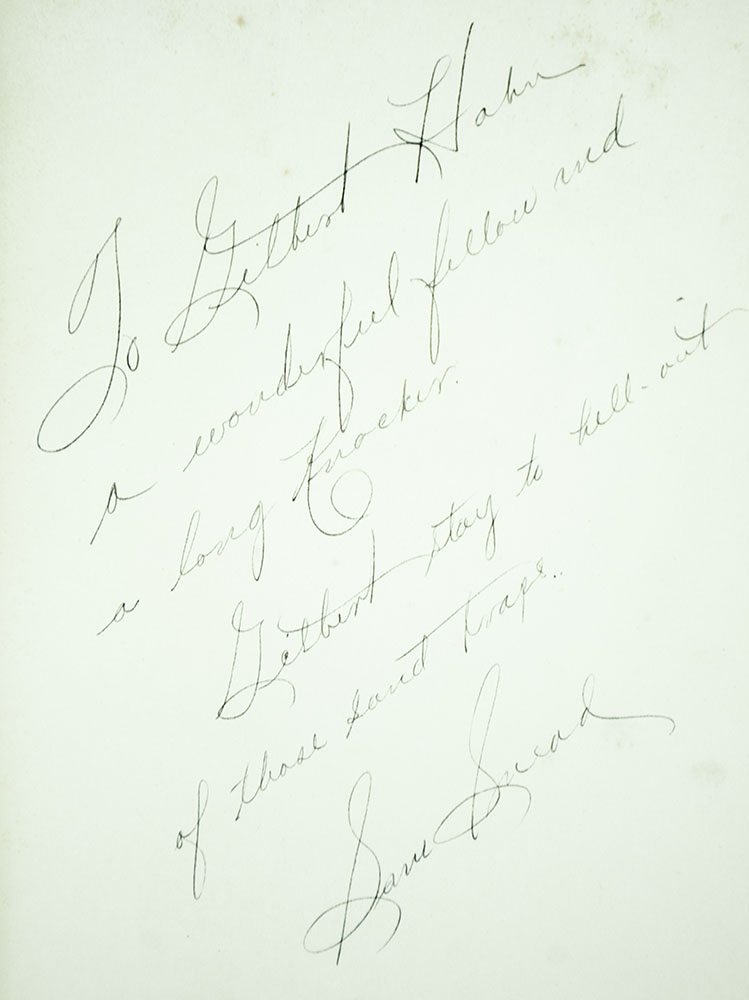 To Gilbert Hahn
a wonderful fellow and
a long Knocker.
Gilbert stay to hell-out
of those sand traps..
Sam Snead